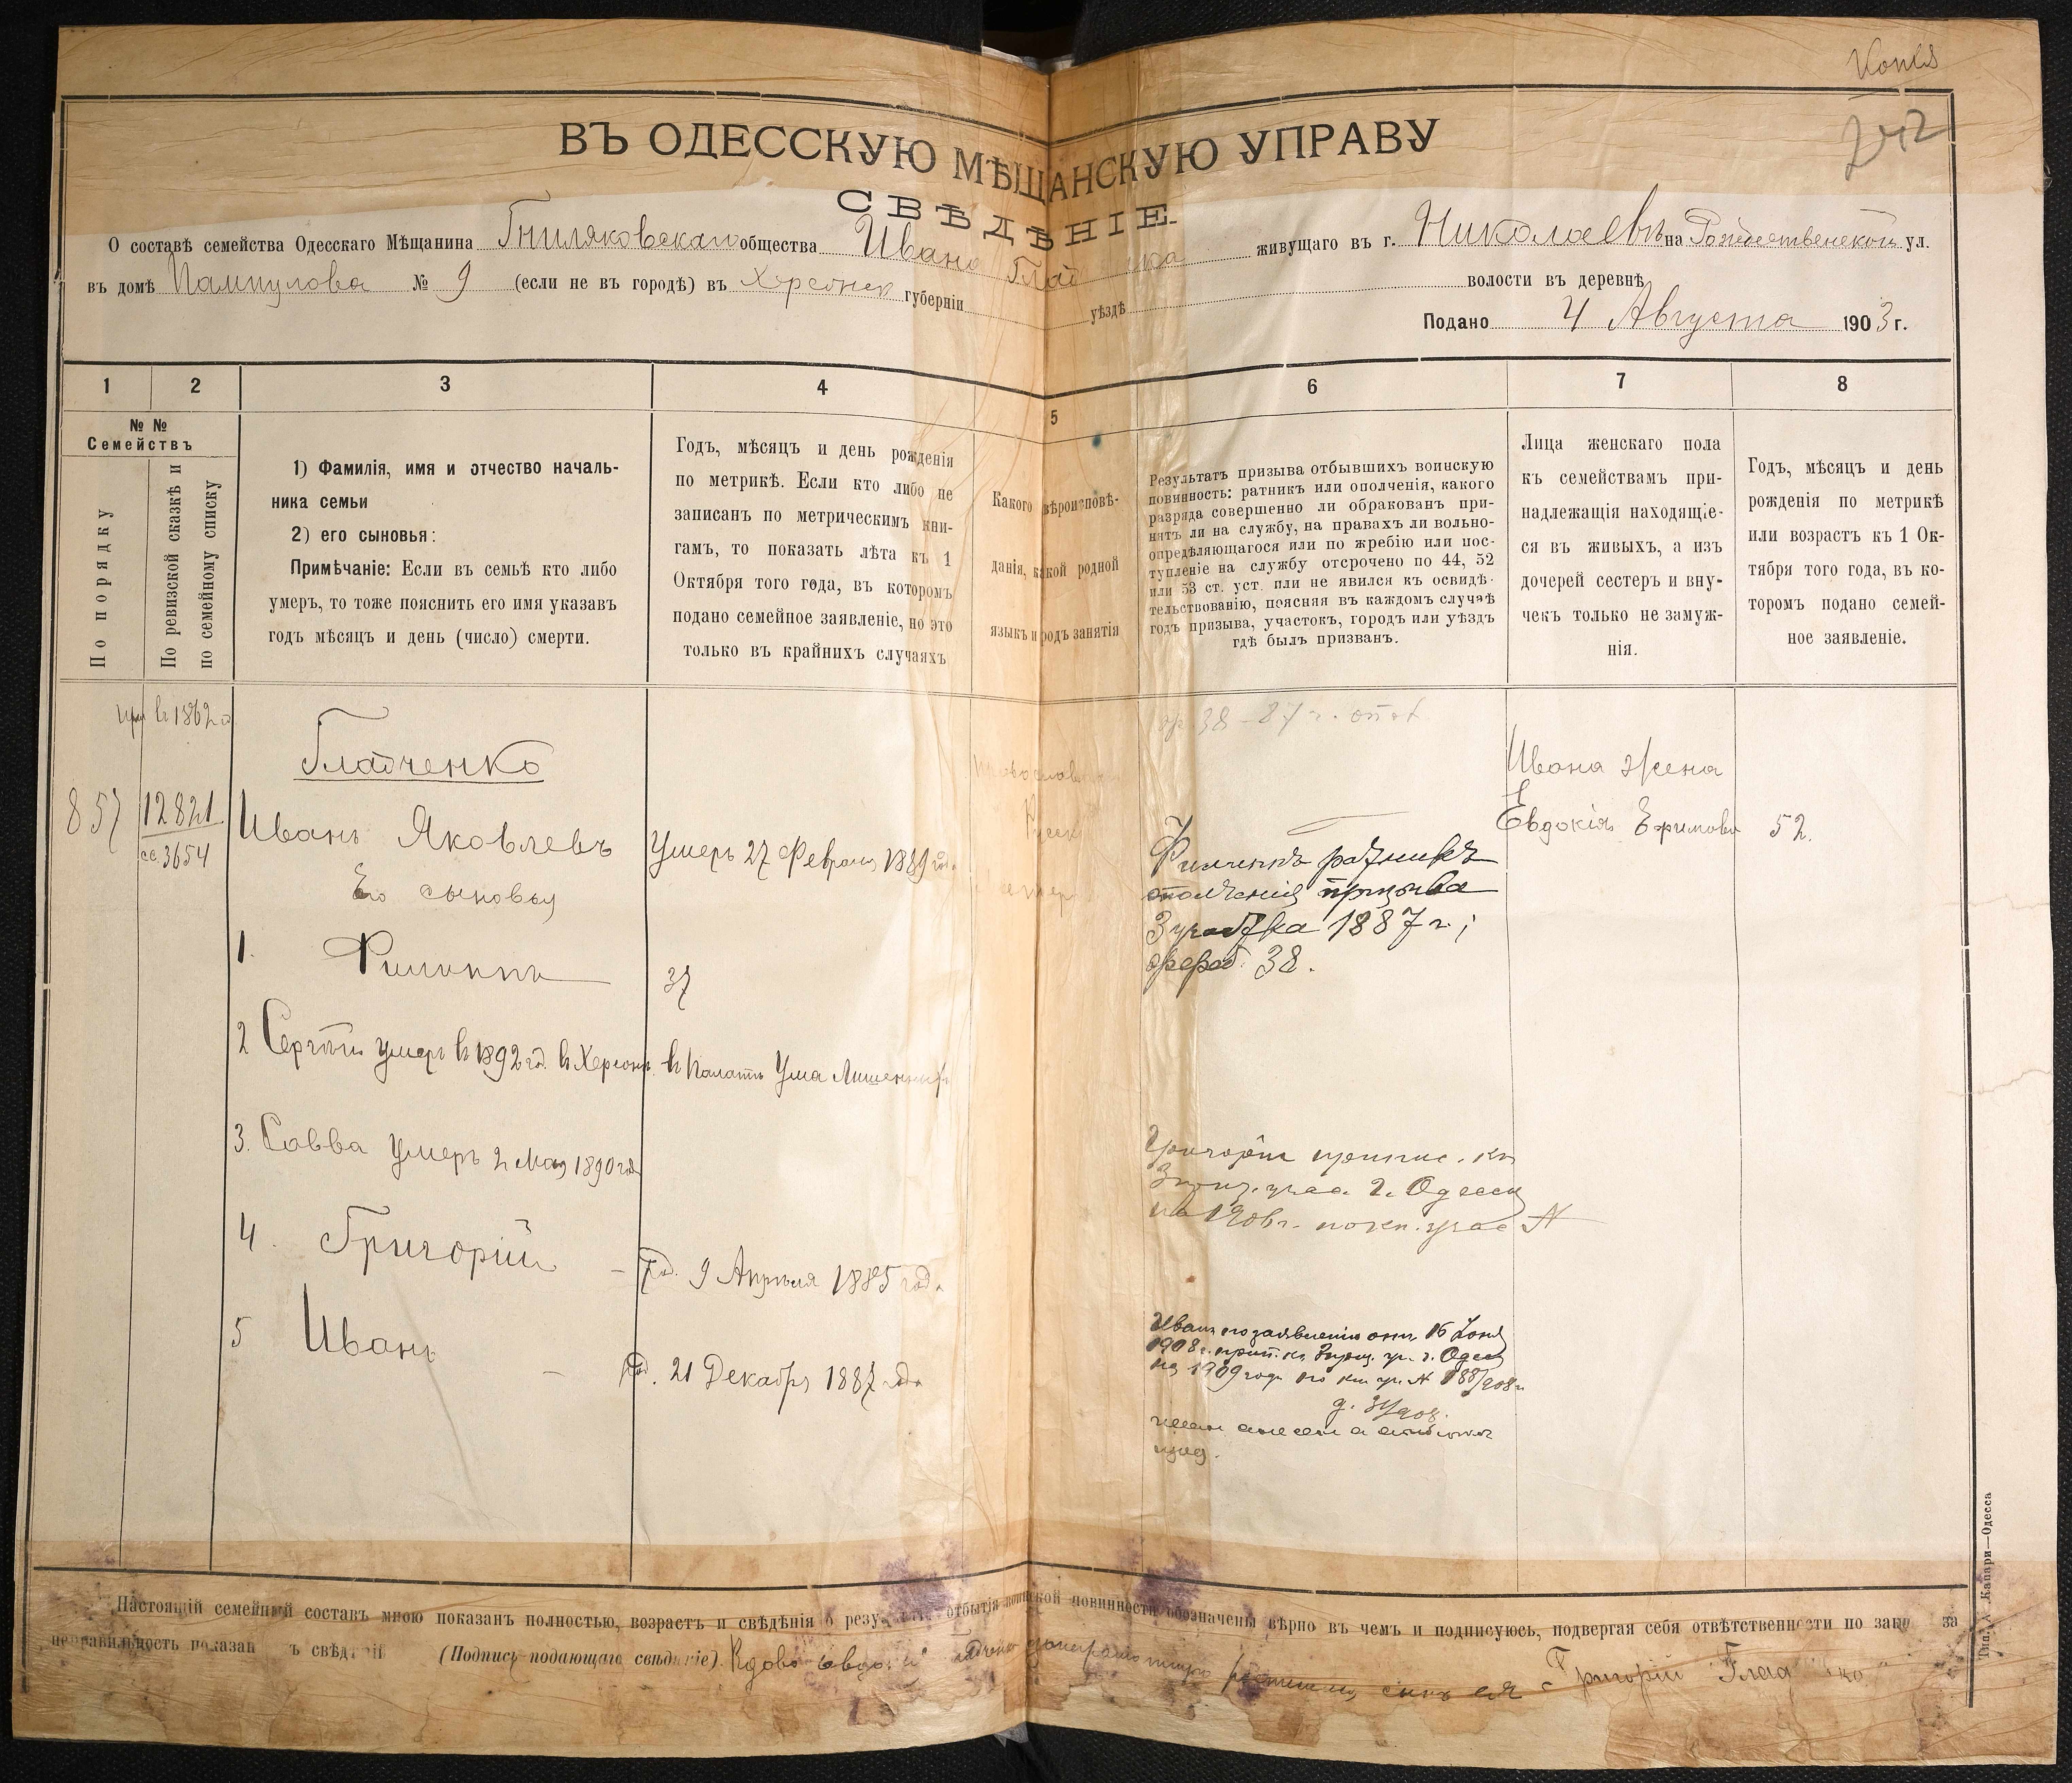 Копія
242
ВЪ ОДЕССКУЮ МѢЩАНСКУЮ УПРАВУ
СВѢДѢНІЕ
О составѣ семейства Одесскаго Мѣщанина Гниляковскаго общества Ивана Гладченка живущаго въ г. Николаевѣ на Рождественской ул.
въ домѣ Пампулова № 9 (если не въ городѣ) въ Херсонск губерніи уѣздѣ волости въ деревнѣ
Подано 4 Августа 1903 г.
1 2 3 4 5 6 7 8
№ №
Семействъ
По порядку
По ревизской сказкѣ и
по семейному списку
1) Фамилія, имя и отчество началь-
ника семьи
2) его сыновья:
Примѣчаніе: Если въ семьѣ кто либо
умеръ, то тоже пояснить его имя указавъ
годъ мѣсяцъ и день (число) смерти.
Годъ, мѣсяцъ и день рожденія
по метрикѣ. Если кто либо не
записанъ по метрическимъ кни-
гамъ, то показать лѣта къ 1
Октября того года, въ которомъ
подано семейное заявленіе, но это
только въ крайнихъ случаяхъ
Какого вѣроисповѣ-
данія, какой родной
языкъ и родъ занятія
Результатъ призыва отбывшихъ воинскую
повинность: ратникъ или ополченія, какого
разряда совершенно ли обракованъ при-
нятъ ли на службу, на правахъ ли вольно-
опредѣляющагося или по жребію или пос-
тупленіе на службу отсрочено по 44, 52
или 53 ст. уст. или не явился къ освидѣ-
тельствованію, поясняя въ каждомъ случаѣ
годъ призыва, участокъ, городъ или уѣздъ
гдѣ былъ призванъ.
Лица женскаго пола
къ семействамъ при-
надлежащія находящіе-
ся въ живыхъ, а изъ
дочерей сестеръ и вну-
чекъ только не замуж-
нія.
Годъ, мѣсяцъ и день
рожденія по метрикѣ
или возрастъ къ 1 Ок-
тября того года, въ ко-
торомъ подано семей-
ное заявленіе.
въ 1862 г.
38 - 87 г.
Гладченко
857
12821
сс. 3654
Иванъ Яковлевъ
Умеръ 27 Февраля 1889 год.
Русск
Ивана жена
Евдокія Ефимова 52.
Его сыновья
1. Филиппъ 37
Филиппъ ратникъ
ополченія призыва
3 участка 1887 г.;
жереб. 38.
2 Сергѣй умеръ въ 1892 год. въ Херсонѣ въ палатѣ Ума Лишенныхъ
3. Савва умеръ 2 Мая 1890 год
Григорій приписс. къ
3 приз. учас. г. Одессы
на 1906 г. по кн. учас №
4. Григорій – Род. 9 Апрѣля 1885 год.
5 Иванъ – Род. 21 Декабр 1887 год.
Иванъ по заявленію отъ 16 Іюня
1908 г. прип. къ 3 приз. уч. г. Одессы
на 1909 годъ по кн. уч. № 188/908 г.
д. 31/908.
Настоящій семейный составъ мною показанъ полностью, возрастъ и свѣдѣнія о резу отбытія воинской повинности обозначены вѣрно въ чемъ и подписуюсь, подвергая себя отвѣтственности по зако за
неправильность показан ъ свѣд ній (Подпись подающаго свѣдѣніе). Вдова Евдокія Гладченко неграмотная росписался сынъ ея Григорій Гладченко
Тип. А. Капари—Одесса